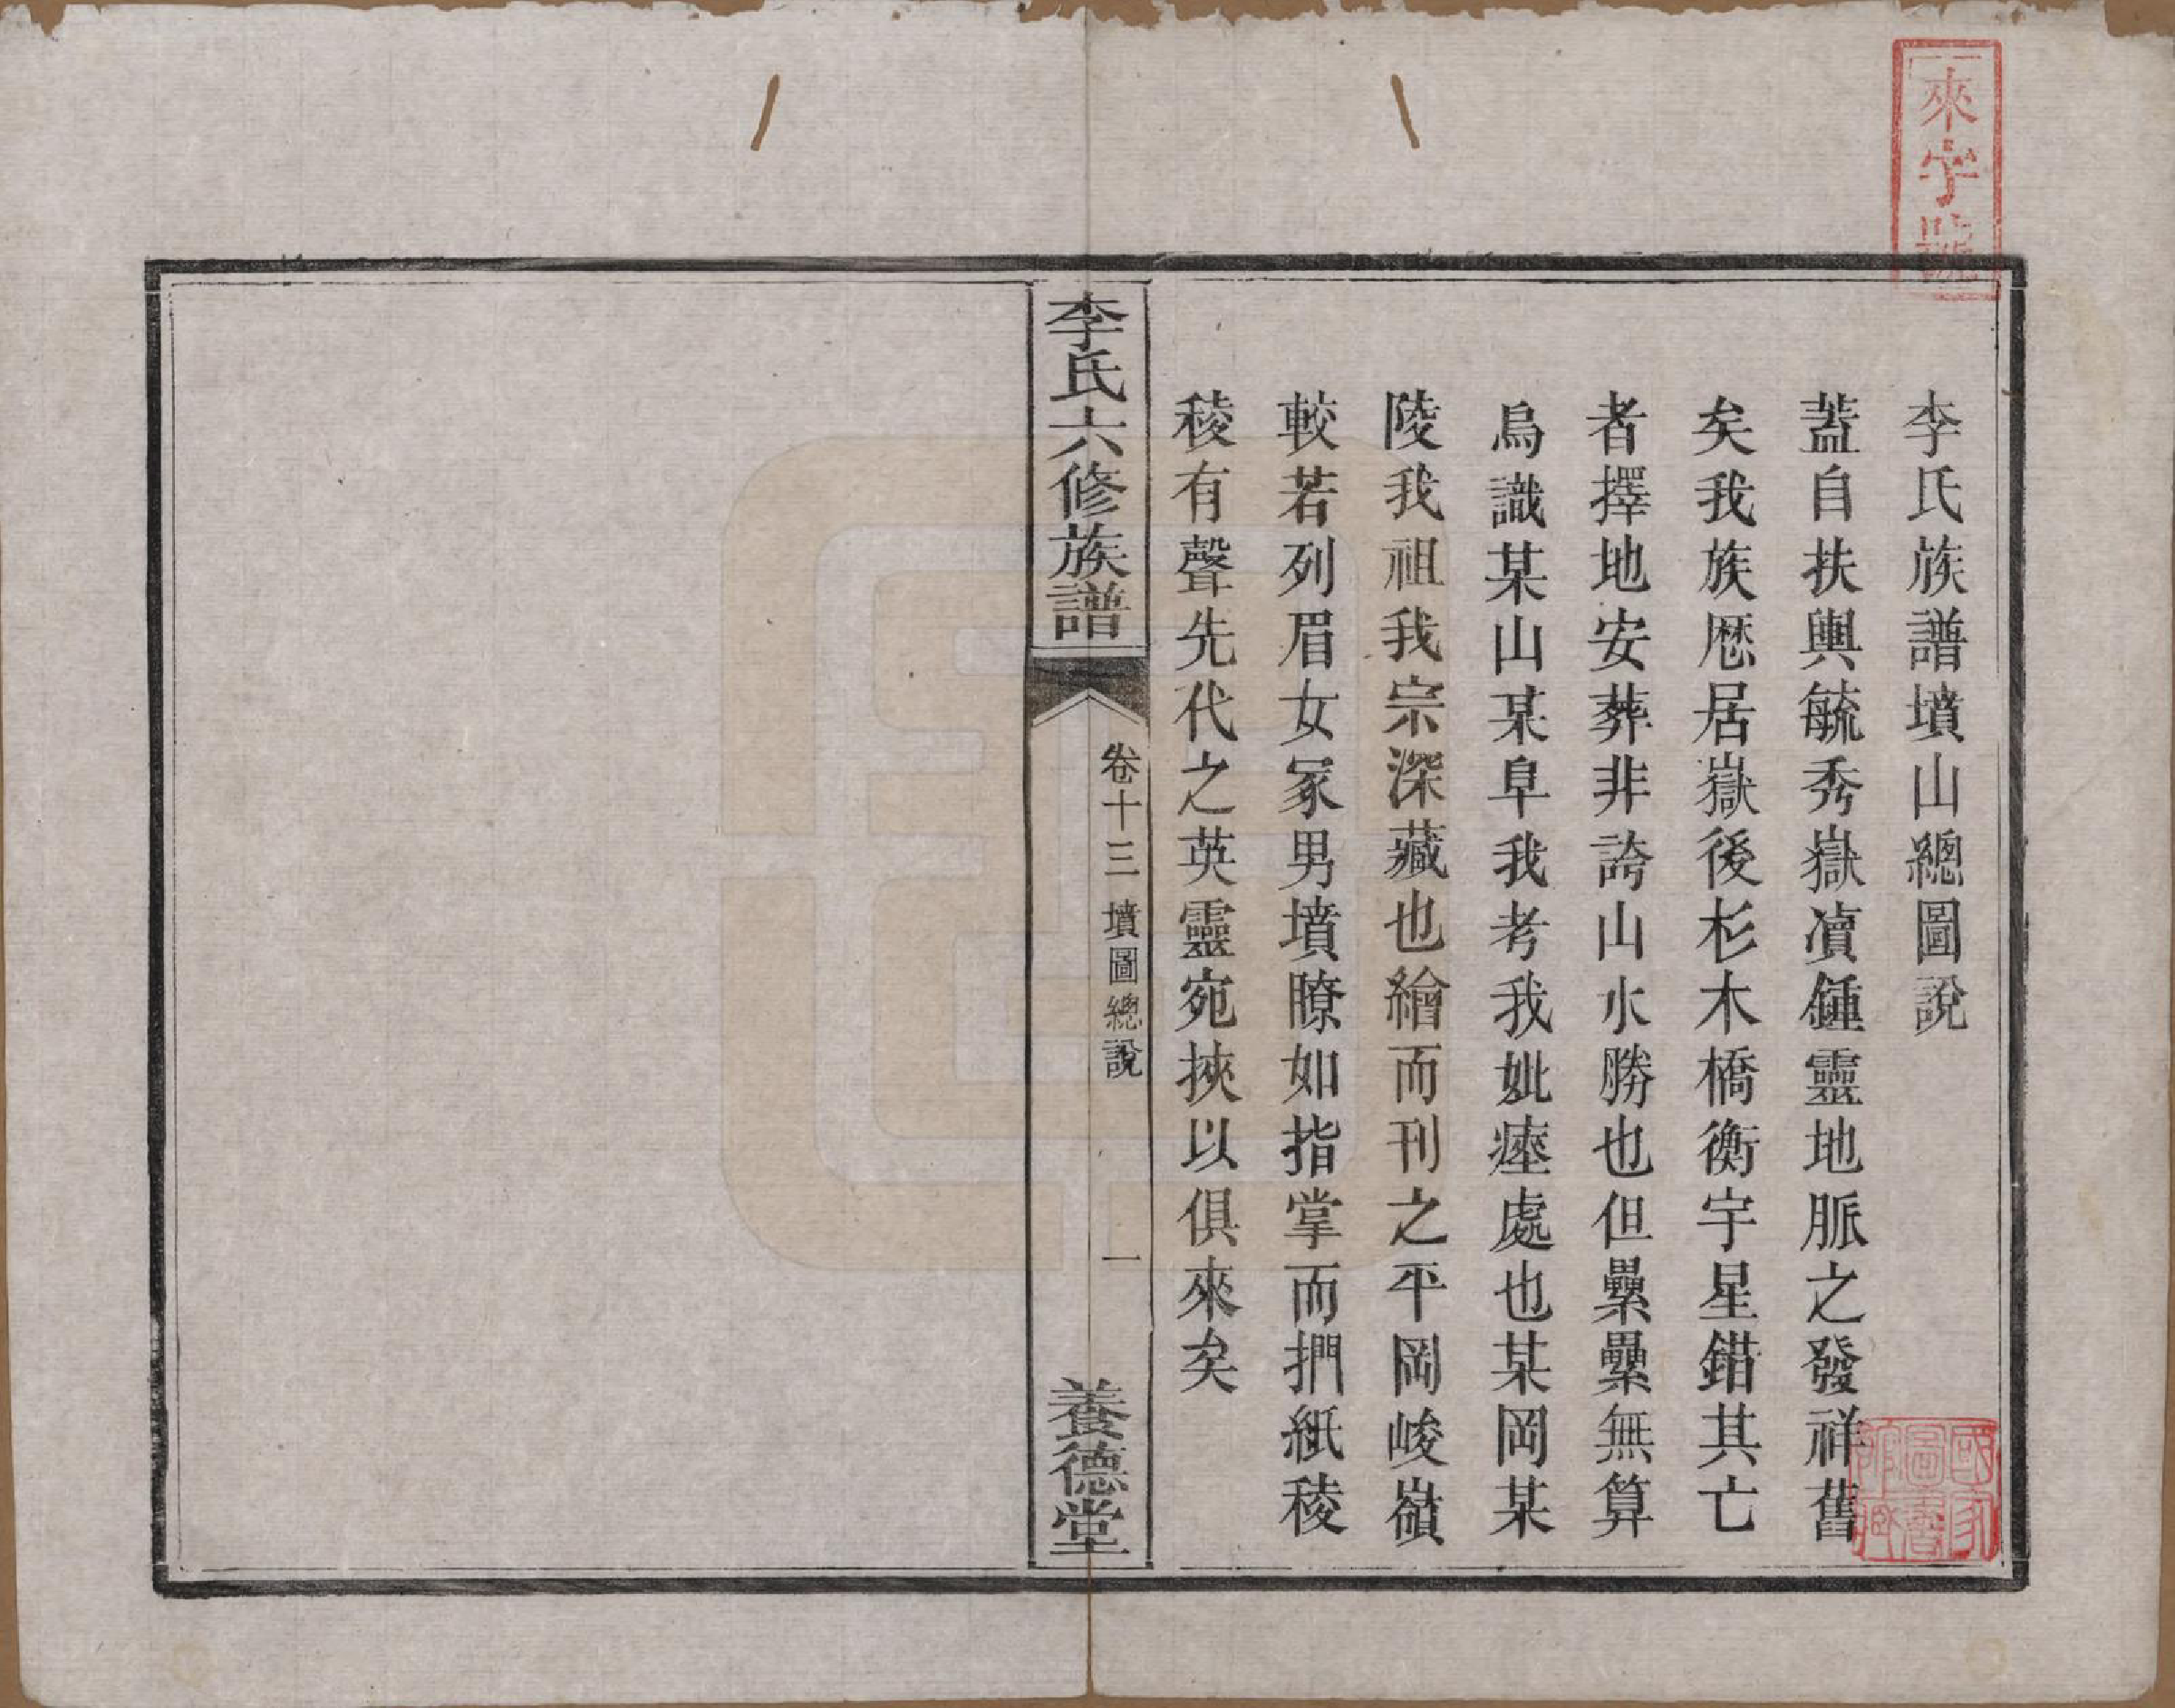 來字號
李氏族譜墳山總圖說
蓋自扶輿毓秀嶽瀆鍾靈地脈之發祥舊
矣我族厯居嶽後杉木橋衡宇星錯其亡
者擇地安葬非誇山水勝也但纍纍無算
烏識某山某阜我考我妣瘞處也某岡某
陵我祖我宗深藏也繪而刊之平岡峻嶺
較若列眉女冢男墳瞭如指掌而捫紙稜
稜有聲先代之英靈宛挾以俱來矣
李氏六修族譜
卷十三 墳圖總說
一
養德堂
國家
圖書
所藏